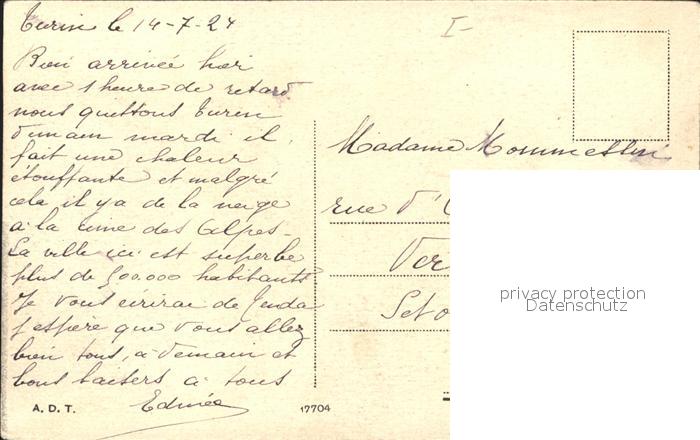 Turin le 14-7-24
Bien arrivée hier
avec 1 heure de retard
nous quittons Turin
demain mardi il
fait une chaleur
étouffante et malgré
cela il y a de la neige
a la cime des Alpes -
La ville ici est superbe
plus de 500.000 habitants
Je vous écrirai de
j'espère que vous allez
bien tous, a demain et
bons baisers a tous
Edmée
A. D. T.
17704
Madame
rue d'
Ver
Set o
privacy protection
Datenschutz